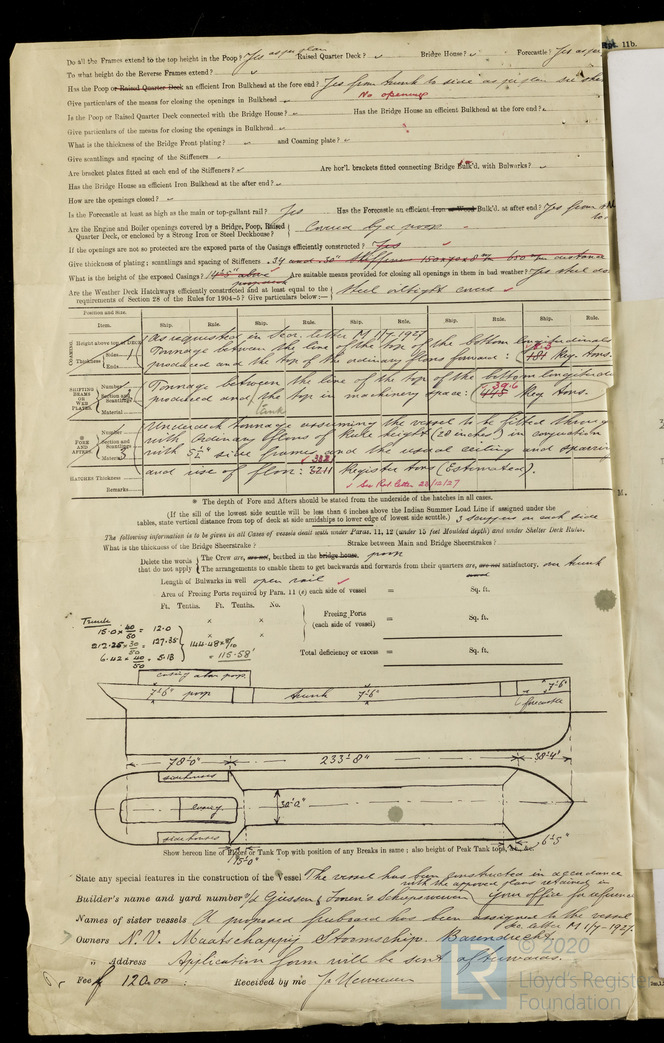 Rpt. 11b.
Do all the Frames extend to the top height in the Poop? Yes as per plan Raised Quarter Deck? Bridge House? Forecastle? Yes as per
To what height do the Reverse Frames extend?
Has the Poop or Raised Quarter Deck an efficient Iron Bulkhead at the fore end? Yes from trunk to side as per plan
Give particulars of the means for closing the openings in Bulkhead No openings
Is the Poop or Raised Quarter Deck connected with the Bridge House? Has the Bridge House an efficient Bulkhead at the fore end?
Give particulars of the means for closing the openings in Bulkhead
What is the thickness of the Bridge Front plating? and Coaming plate?
Give scantlings and spacing of the Stiffeners
Are bracket plates fitted at each end of the Stiffeners? Are hor'l. brackets fitted connecting Bridge Bulk'd. with Bulwarks?
Has the Bridge House an efficient Iron Bulkhead at the after end?
How are the openings closed?
Is the Forecastle at least as high as the main or top-gallant rail? Yes Has the Forecastle an efficient Iron or Wood Bulk'd. at after end? Yes from
Are the Engine and Boiler openings covered by a Bridge, Poop, Raised
Quarter Deck, or enclosed by a Strong Iron or Steel Deckhouse? Covered by a poop
If the openings are not so protected are the exposed parts of the Casings efficiently constructed? Yes
Give thickness of plating; scantlings and spacing of Stiffeners .34 and .30" Stiffeners 150x90x8 m/m 650 m/m distance
What is the height of the exposed Casings? above Are suitable means provided for closing all openings in them in bad weather? Yes steel
Are the Weather Deck Hatchways efficiently constructed and at least equal to the
requirements of Section 28 of the Rules for 1904-5? Give particulars below:— steel oiltight covers
Position and Size.
Item. Ship. Rule. Ship. Rule. Ship. Rule. Ship. Rule. Ship. Rule.
COAMING Height above top of DECK
Thickness Sides
Ends
As requested in Secr. letter M 1/7 1927
Tonnage between the line of the top of the bottom longitudinals
produced and the top of the ordinary floors forward: Reg. tons.
SHIFTING BEAMS OR WEB PLATES Number
Section and Scantlings
Material
Tonnage between the line of the top of the bottom longitud
produced and the top in machinery space: Reg tons.
FORE AND AFTERS. Number
Section and Scantlings
Material
Underdeck tonnage assuming the vessel to be fitted throug
with ordinary floors of Rule height (28 inches) in conjunction
with side frames and the usual ceiling and sparring
and rise of floor: 3211 Register tons (Estimated).
HATCHES Thickness
Remarks
See Rot letter 28/12/27
* The depth of Fore and Afters should be stated from the underside of the hatches in all cases.
(If the sill of the lowest side scuttle will be less than 6 inches above the Indian Summer Load Line if assigned under the
tables, state vertical distance from top of deck at side amidships to lower edge of lowest side scuttle.) 3 scuppers on each side
The following information is to be given in all Cases of Vessels dealt with under Paras. 11, 12 (under 15 feet Moulded depth) and under Shelter Deck Rules.
What is the thickness of the Bridge Sheerstrake? Strake between Main and Bridge Sheerstrakes?
Delete the words
that do not apply
The Crew are, are not, berthed in the bridge house. poop
The arrangements to enable them to get backwards and forwards from their quarters are, are not satisfactory. over trunk
Length of Bulwarks in well open rail
Area of Freeing Ports required by Para. 11 (e) each side of vessel = Sq. ft.
Ft. Tenths. Ft. Tenths. No.
Freeing Ports
(each side of vessel) = Sq. ft.
Total deficiency or excess = Sq. ft.
Trunk
15.0 x 40/50 = 12.0
212.25 x 30/50 = 127.35
6.42 x 40/50 = 5.13
144.48 x 8/10
= 115.58'
casing atop poop
7'-6" poop trunk 7'-6" 7'-6"
forecastle
78'-0" 233'-8" 38'-4"
sidehouses
casing 30'-0"
sidehouses
6'-5"
15'-0"
Show hereon line of Floors or Tank Top with position of any Breaks in same; also height of Peak Tank tops, &c., &c.
State any special features in the construction of the Vessel The vessel has been constructed in accordance
with the approved plans retained in
Builder's name and yard number Giessen & Zonen's Scheepswerven your office for reference
Names of sister vessels A proposed freeboard has been assigned to the vessel
See letter M 1/7-1927.
Owners N.V. Maatschappij Stoomschip Barendrecht
" Address Application form will be sent afterwards.
Fee ƒ 120.00 Received by me
© 2020
LR
Lloyd's Register
Foundation